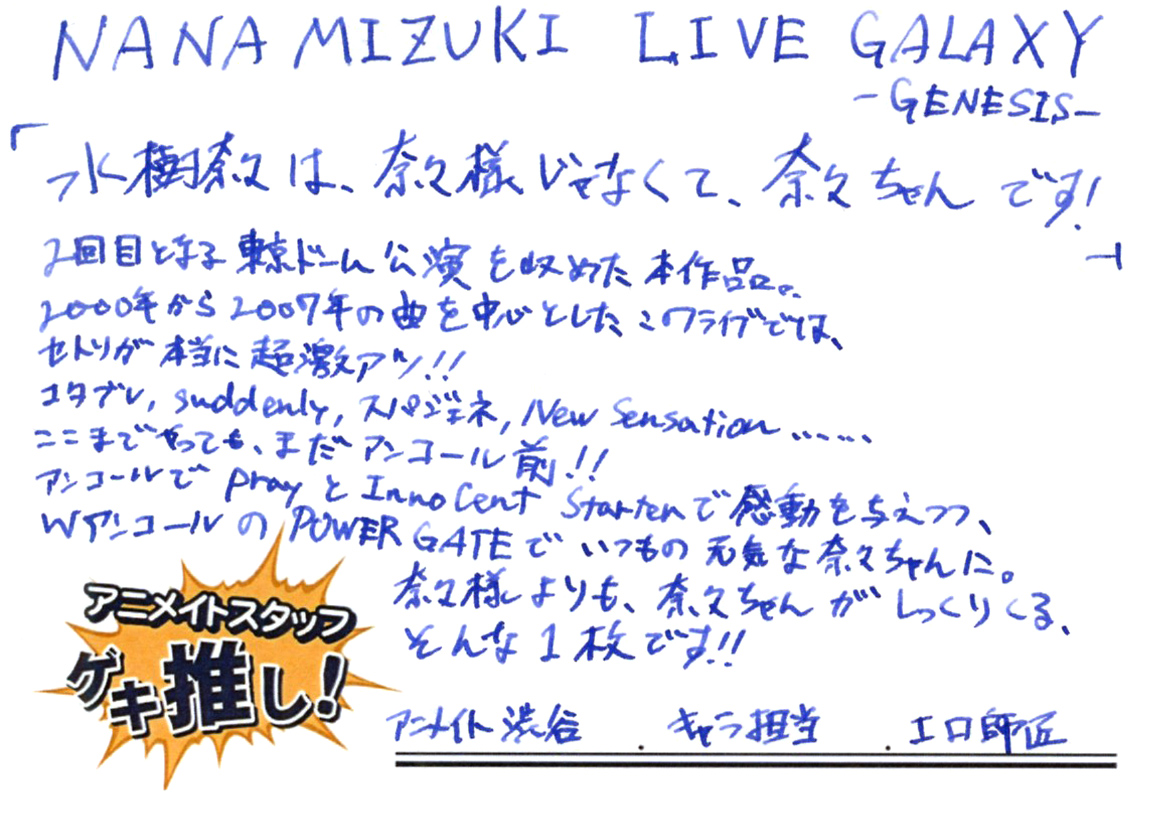 NANA MIZUKI LIVE GALAXY
-GENESIS-
「水樹奈々は、奈々様じゃなくて、奈々ちゃんです!」
2回目となる東京ドーム公演を収めた本作品。
2000年から2007年の曲を中心としたこのライブでは、
セトリが本当に超激アツ!!
コタブレ, suddenly, スパジェネ, New Sensation......
ここまでやっても、まだアンコール前!!
アンコールで Pray と Innocent Starterで感動を与えつつ、
WアンコールのPOWER GATEでいつもの元気な奈々ちゃんに。
奈々様よりも、奈々ちゃんがしっくりくる、
そんな1枚です!!
アニメイトスタッフ
ゲキ推し!
アニメイト渋谷 . キャラ担当 . エロ師匠